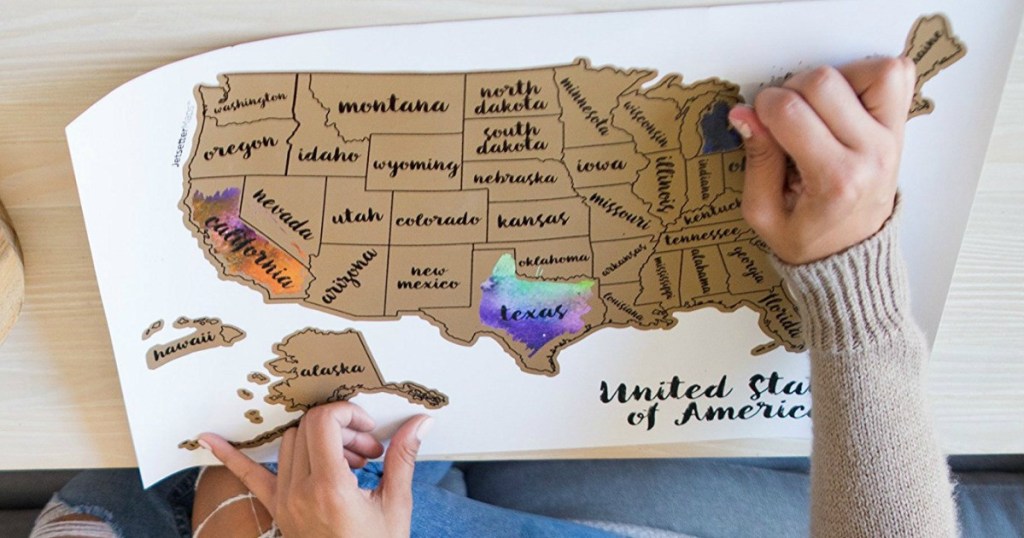 JetsetterMaps
washington
montana
north
dakota
minnesota
wisconsin
maine
oregon
idaho
wyoming
south
dakota
iowa
illinois
indiana
nebraska
nevada
utah
colorado
kansas
missouri
kentucky
california
arizona
new
mexico
oklahoma
arkansas
tennessee
mississippi
alabama
georgia
texas
louisiana
florida
hawaii
alaska
United Sta
of America